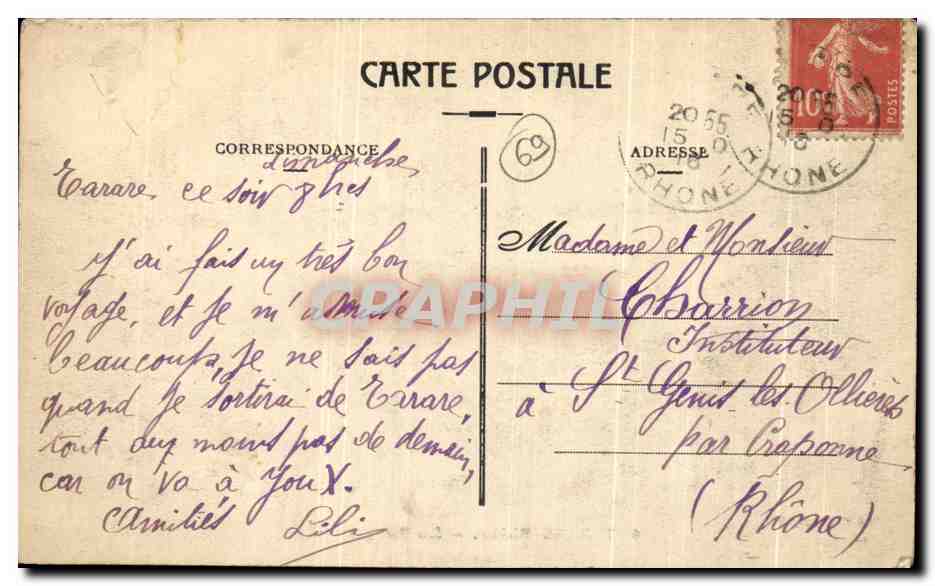 CARTE POSTALE
CORRESPONDANCE
dimanche
Tarare ce soir 8 hes
J'ai fais un très bon
voyage, et je m'amuse
beaucoup, je ne sais pas
quand je sortirai de Tarare,
tout au moins pas de demain,
car on va à Joux.
Amitiés
Lili
69
ADRESSE
Madame et Monsieur
Charrion
Instituteur
à St Genis les Ollières
par Craponne
(Rhône)
20 55
15
16
RHONE
20 55
15
16
RHONE
10
POSTES
CPAPHIL